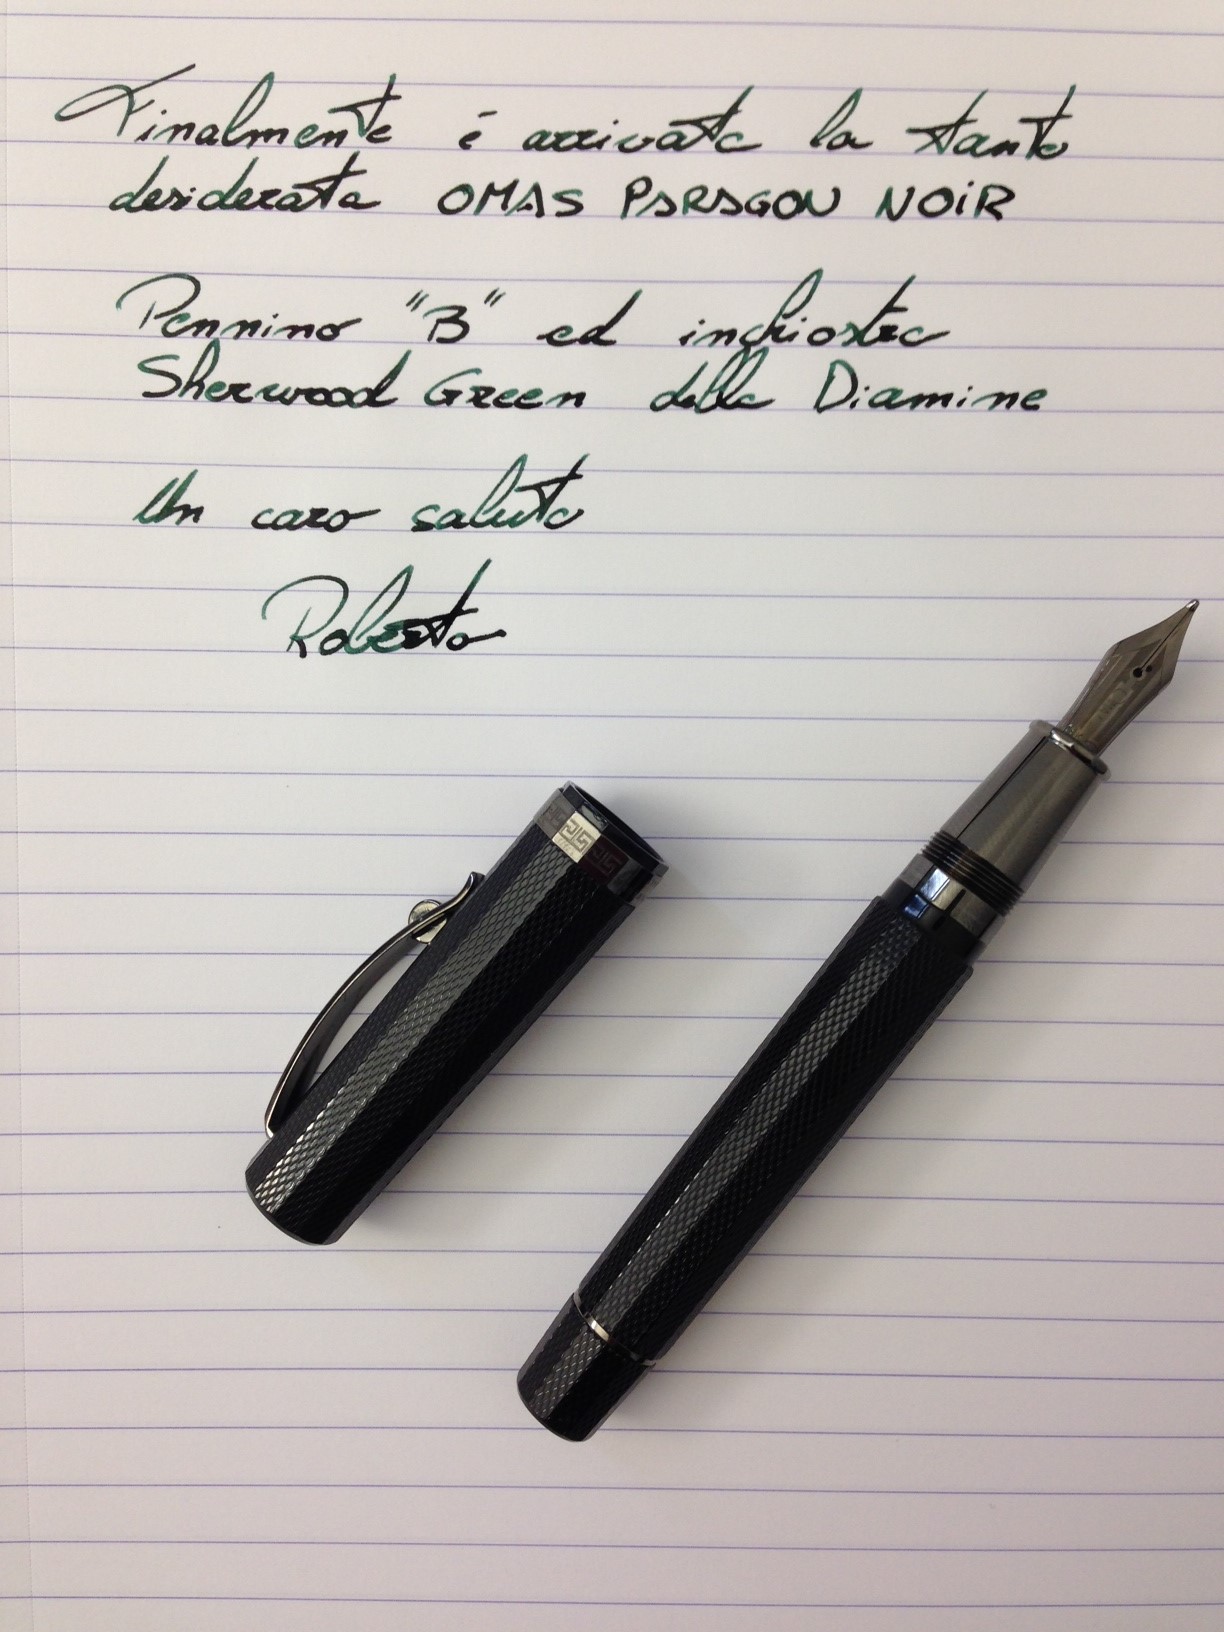 Finalmente è arrivata la tanto
desiderata OMAS PARAGON NOIR
Pennino "B" ed inchiostro
Sherwood Green della Diamine
Un caro saluto
Roberto